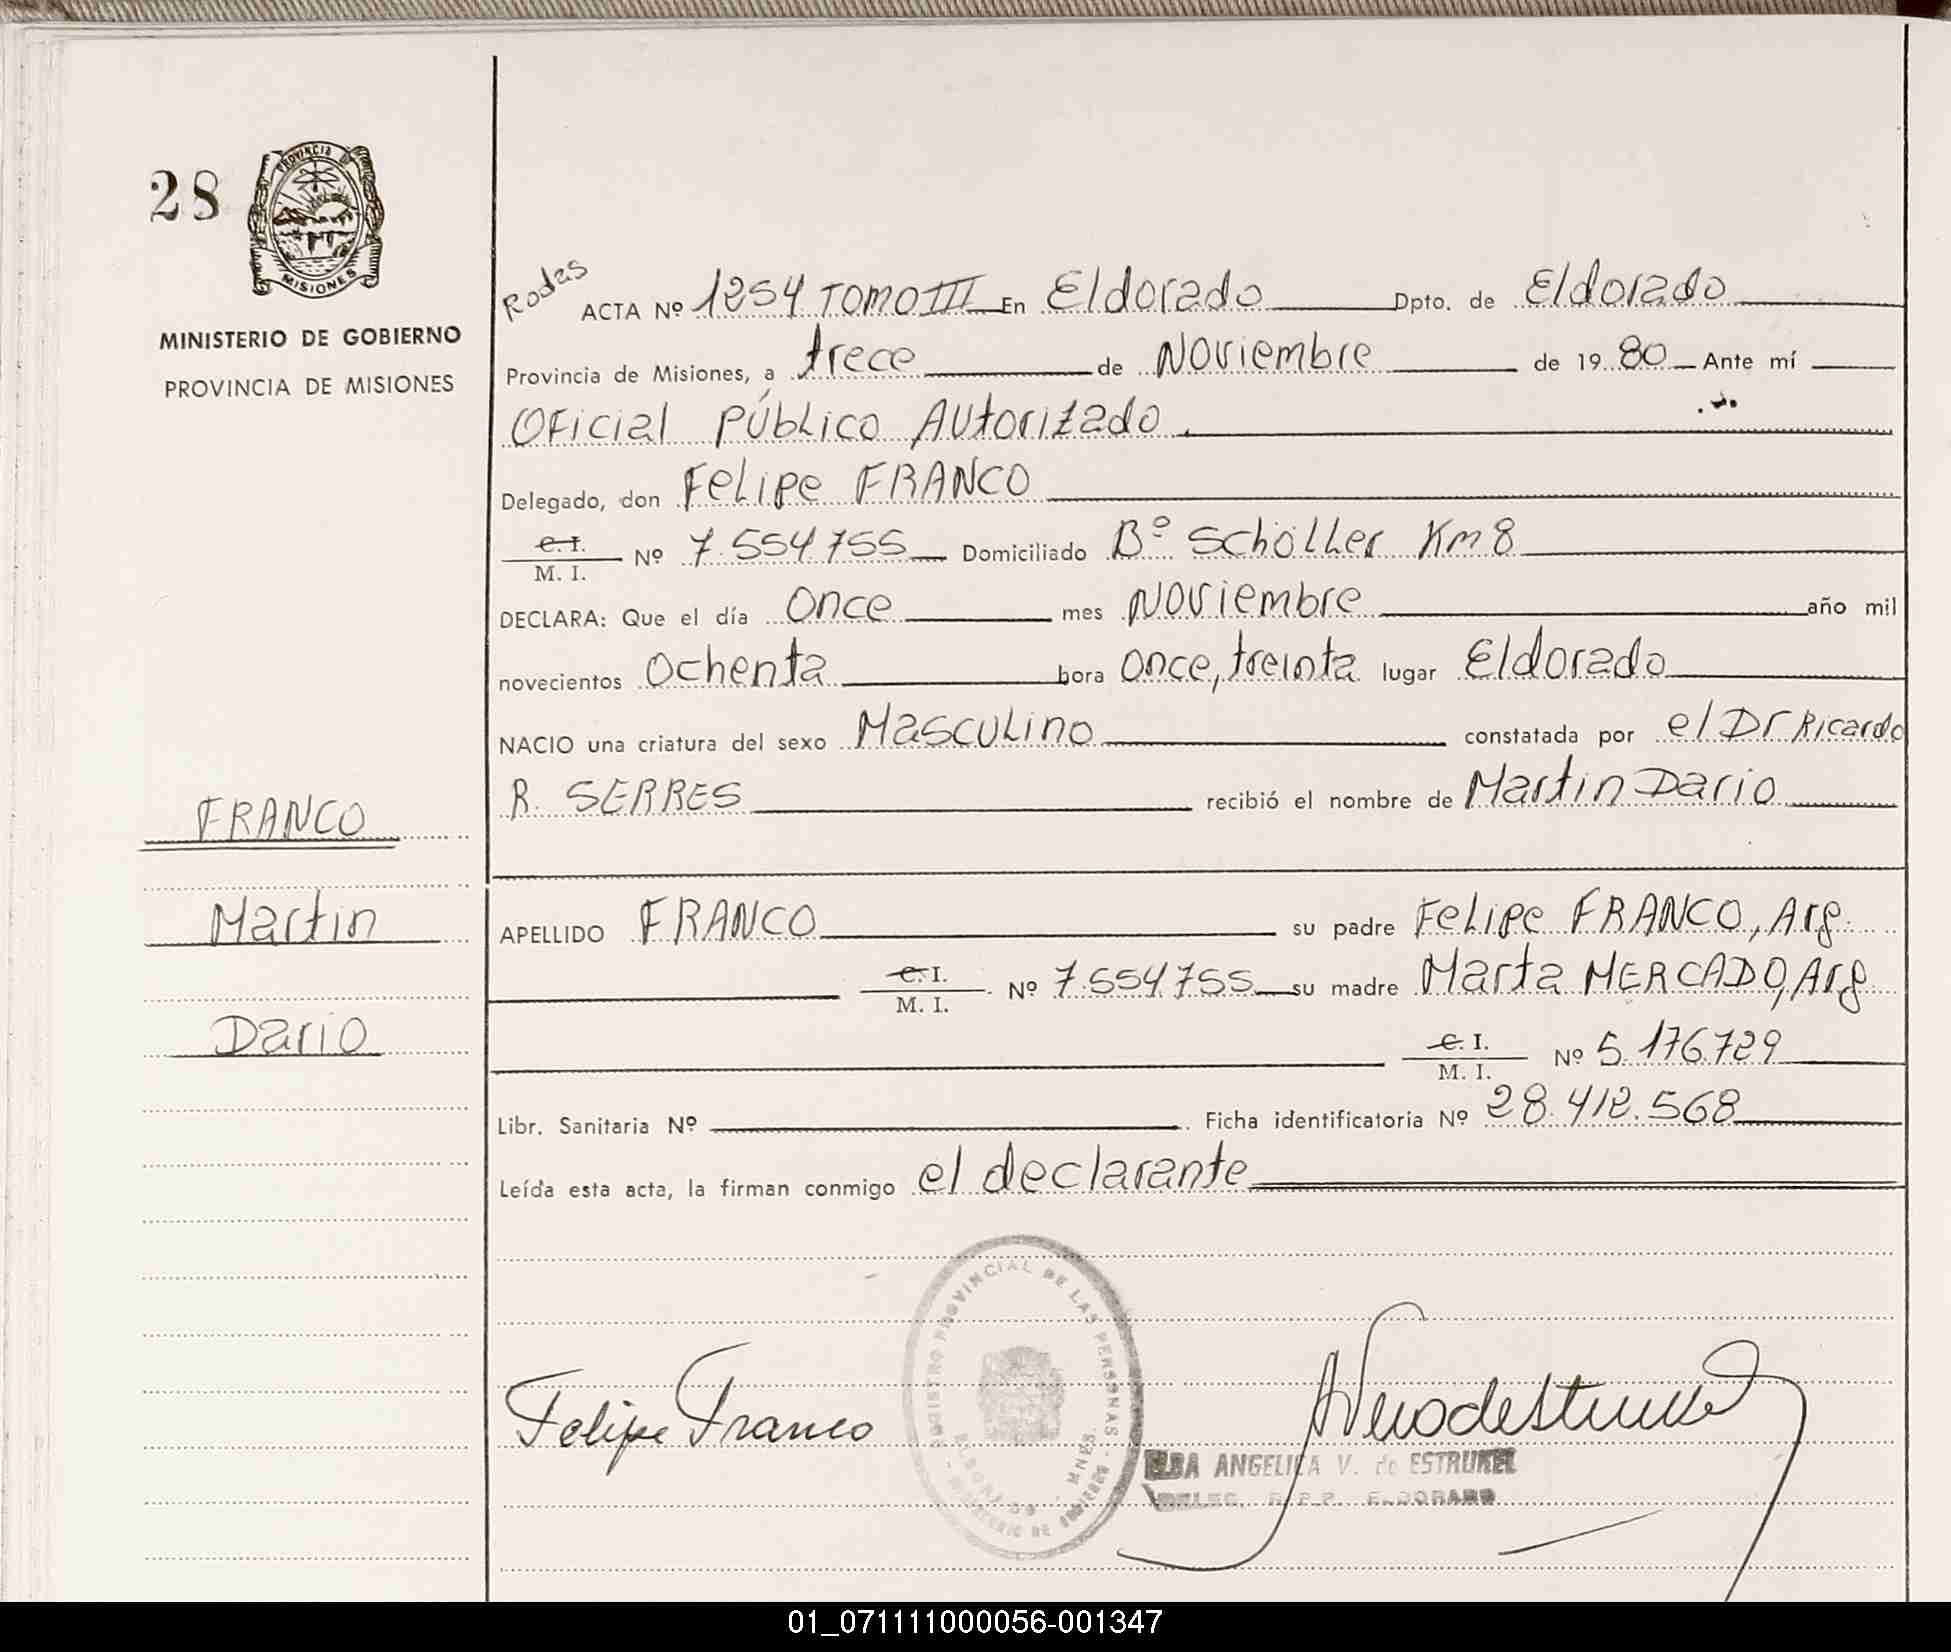 28
PROVINCIA DE
MISIONES
MINISTERIO DE GOBIERNO
PROVINCIA DE MISIONES
FRANCO
Martin
Dario
Rodas
ACTA Nº 1254 TOMO III En Eldorado Dpto. de Eldorado
Provincia de Misiones, a trece de Noviembre de 19 80 Ante mí
Oficial Público Autorizado.
Delegado, don Felipe FRANCO
C. I. / M. I. Nº 7.554.755 Domiciliado Bº Schöller Km 8
DECLARA: Que el día Once mes Noviembre año mil
novecientos Ochenta hora once, treinta lugar Eldorado
NACIO una criatura del sexo Masculino constatada por el Dr Ricardo
R. SERRES recibió el nombre de Martin Dario
APELLIDO FRANCO su padre Felipe FRANCO, Arg.
C. I. / M. I. Nº 7.554.755 su madre Marta MERCADO, Arg
C. I. / M. I. Nº 5.176.729
Libr. Sanitaria Nº Ficha identificatoria Nº 28.412.568
Leída esta acta, la firman conmigo el declarante
REGISTRO PROVINCIAL DE LAS PERSONAS
MINISTERIO DE GOBIERNO
ELDORADO - MNES.
Felipe Franco
ELBA ANGELICA V. de ESTRUKEL
DELEG. R.P.P. ELDORADO
01_071111000056-001347